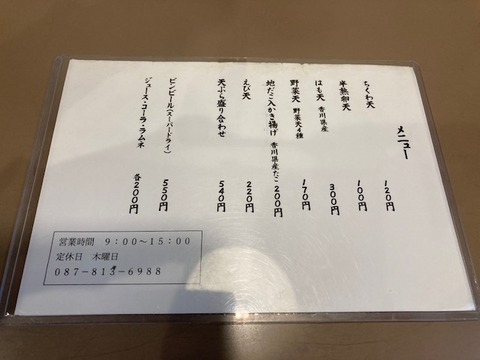 メニュー
ちくわ天 120円
半熟卵天 100円
はも天 香川県産 300円
野菜天 野菜天4種 170円
地だこ入かき揚げ 香川県産たこ 200円
えび天 220円
天ぷら盛り合わせ 540円
ビンビール(スーパードライ) 550円
ジュース・コーラ・ラムネ 各200円
営業時間 9:00〜15:00
定休日 木曜日
087-813-6988